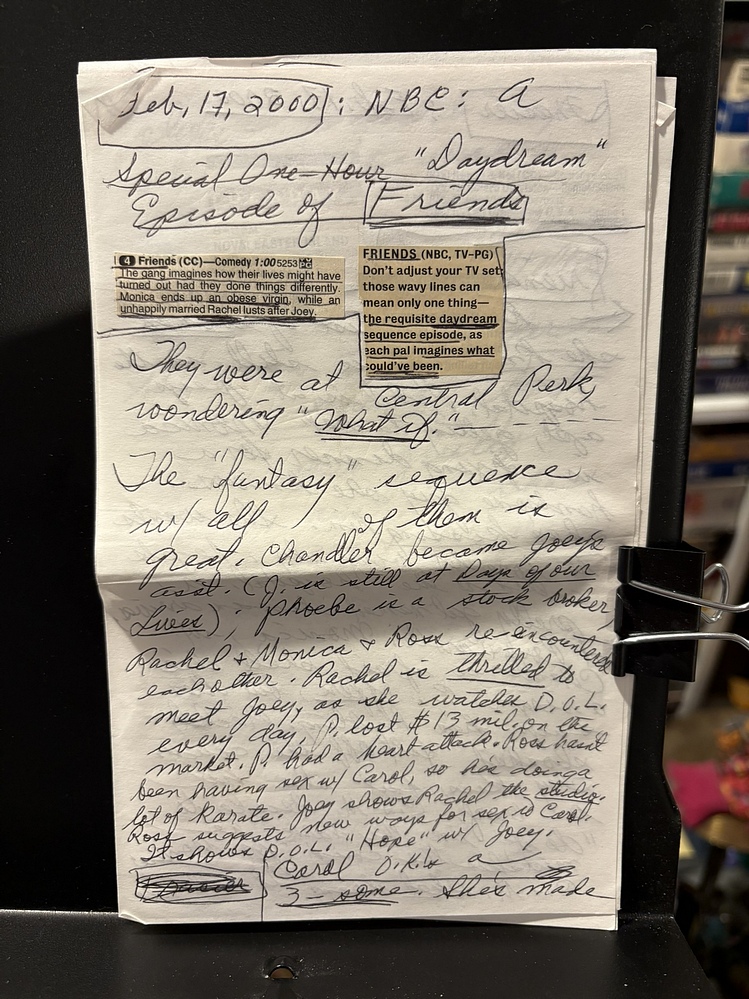 Feb, 17, 2000: NBC: A
Special One-Hour "Daydream"
Episode of Friends
4 Friends (CC)—Comedy 1:00 5253
The gang imagines how their lives might have
turned out had they done things differently.
Monica ends up an obese virgin, while an
unhappily married Rachel lusts after Joey.
FRIENDS (NBC, TV-PG)
Don't adjust your TV set:
those wavy lines can
mean only one thing—
the requisite daydream
sequence episode, as
each pal imagines what
could've been.
They were at Central Perk,
wondering "What if."
The "fantasy" sequence
w/ all of them is
great. Chandler became Joey's
asst. (J. is still at Days of our
Lives); Phoebe is a stock broker,
Rachel + Monica + Ross re-encountered
eachother. Rachel is thrilled to
meet Joey, as she watches D.O.L.
every day, P. lost $13 mil. on the
market. P. had a heart attack. Ross hasn't
been having sex w/ Carol, so he's doing a
lot of Karate. Joey shows Rachel the studio.
Ross suggests new ways for sex w/ Carol.
It shows D.O.L. "Hope" w/ Joey.
Carol O.K.'s a
3-some. She's made